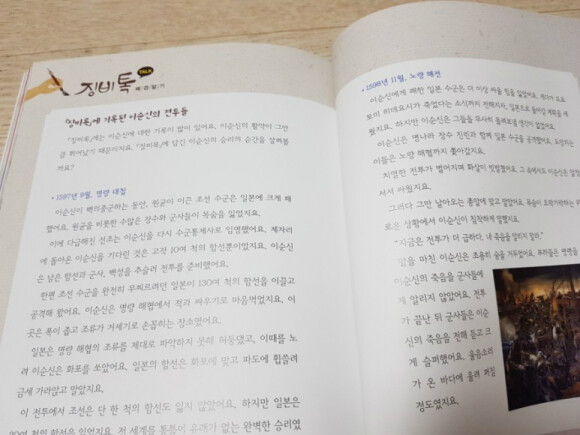 징비톡
TALK
『징비록』에 기록된 이순신의 전투들
『징비록』에는 이순신에 대한 기록이 많이 있어요. 이순신의 활약이 그만
큼 뛰어났기 때문이지요. 『징비록』에 담긴 이순신의 승리의 순간을 살펴볼
까요?
• 1597년 9월, 명량 대첩
이순신이 백의종군하는 동안, 원균이 이끈 조선 수군은 일본에 크게 패
했어요. 원균을 비롯한 수많은 장수와 군사들이 목숨을 잃었지요.
이에 다급해진 선조는 이순신을 다시 수군통제사로 임명했어요. 제자리
에 돌아온 이순신을 기다린 것은 고작 10여 척의 함선뿐이었지요. 이순신
은 남은 함선과 군사, 백성을 추슬러 전투를 준비했어요.
한편 조선 수군을 완전히 무찌르려던 일본이 130여 척의 함선을 이끌고
공격해 왔어요. 이순신은 명량 해협에서 적과 싸우기로 마음먹었지요. 이
곳은 폭이 좁고 조류가 거세기로 손꼽히는 장소였어요.
일본은 명량 해협의 조류를 제대로 파악하지 못해 허둥댔고, 이때를 노
려 이순신은 화포를 쏘았어요. 일본의 함선은 화포에 맞고 파도에 휩쓸려
금세 가라앉고 말았지요.
이 전투에서 조선은 단 한 척의 함선도 잃지 않았어요. 하지만 일본은
척의 함선을 잃었지요. 전 세계를 통틀어 유례가 없는 완벽한 승리였
• 1598년 11월, 노량 해전
이순신에게 패한 일본 수군은 더 이상 싸울 힘을 잃었어요. 게다가 도요
토미 히데요시가 죽었다는 소식까지 전해지자, 일본으로 돌아갈 계획을 세
웠지요. 하지만 이순신은 그들을 무사히 돌려보낼 생각이 없었어요.
이순신은 명나라 장수 진린과 함께 일본 수군을 공격했어요.
이들은 노량 해협까지 쫓아갔지요.
치열한 전투가 벌어지며 화살이 빗발쳤어요. 그 속에서도 이순신은
서서 싸웠지요.
그러다 그만 날아오는 총알에 맞고 말았지요. 목숨이
로운 상황에서 이순신이 침착하게 말했지요.
"지금은 전투가 더 급하다. 내 죽음을 알리지 말라."
말을 마친 이순신은 조용히 숨을 거두었어요. 부하들은
이순신의 죽음을 군사들에
게 알리지 않았어요. 전투
가 끝난 뒤 군사들은 이순
신의 죽음을 전해 듣고 크
게 슬퍼했어요. 울음소리
가 온 바다에 울려 퍼질
정도였지요.